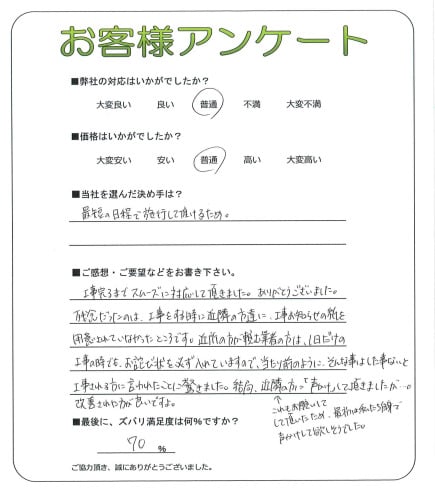 お客様アンケート
■弊社の対応はいかがでしたか？
大変良い 良い 普通 不満 大変不満
■価格はいかがでしたか？
大変安い 安い 普通 高い 大変高い
■当社を選んだ決め手は？
最短の日程で施行して頂けるため。
■ご感想・ご要望などをお書き下さい。
工事完了までスムーズに対応して頂きました。ありがとうございました。
残念だったのは、工事をする時に近隣の方達に、工事お知らせの紙を
用意されていなかったところです。近所の方が頼む業者の方は、1日だけの
工事の時でも、お詫び状を必ず入れていますので、当たり前のように、そんな事はした事ないと
工事される方に言われたことに驚きました。結局、近隣の方へ「声かけして頂きましたが…。
改善された方が良いですよ。
↑これもお願いして
して頂いたため、最初は私たち自身で
声かけして欲しそうでした。
■最後に、ズバリ満足度は何％ですか？
70 ％
ご協力頂き、誠にありがとうございました。